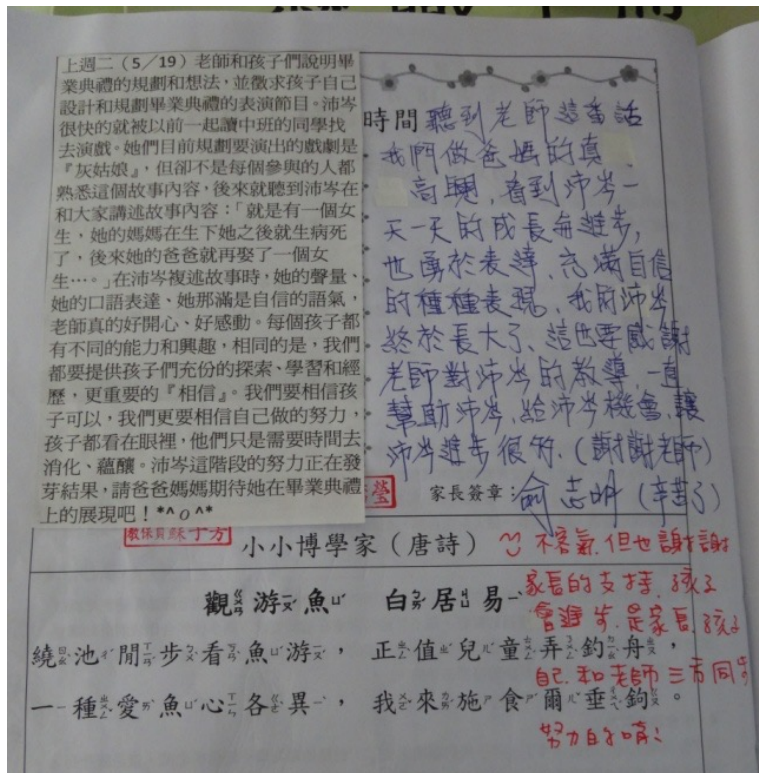 上週二（5／19）老師和孩子們說明畢
業典禮的規劃和想法，並徵求孩子自己
設計和規劃畢業典禮的表演節目。沛岑
很快的就被以前一起讀中班的同學找
去演戲。她們目前規劃要演出的戲劇是
『灰姑娘』，但卻不是每個參與的人都
熟悉這個故事內容，後來就聽到沛岑在
和大家講述故事內容：「就是有一個女
生，她的媽媽在生下她之後就生病死
了，後來她的爸爸就再娶了一個女
生…。」在沛岑複述故事時，她的聲量、
她的口語表達、她那滿是自信的語氣，
老師真的好開心、好感動。每個孩子都
有不同的能力和興趣，相同的是，我們
都要提供孩子們充份的探索、學習和經
歷，更重要的『相信』。我們要相信孩
子可以，我們更要相信自己做的努力，
孩子都看在眼裡，他們只是需要時間去
消化、蘊釀。沛岑這階段的努力正在發
芽結果，請爸爸媽媽期待她在畢業典禮
上的展現吧！*^o^*
時間 聽到老師這番話
我們做爸媽的真
高興，看到沛岑一
天一天的成長每進步，
也勇於表達，充滿自信
的種種表現，我的沛岑
終於長大了、這也要感謝
老師對沛岑的教導，一直
幫助沛岑，給沛岑機會，讓
沛岑進步很多、（謝謝老師）
瑩
家長簽章：俞志明（辛苦了）
教保員蘇于芳
小小博學家（唐詩）
不客氣，但也謝謝
家長的支持，孩子
會進步，是家長，孩子
自己和老師三方同時
努力的唷！
觀ㄍㄨㄢ游ㄧㄡˊ魚ㄩˊ 白ㄅㄞˊ居ㄐㄩ易ㄧˋ
繞ㄖㄠˋ池ㄔˊ閒ㄒㄧㄢˊ步ㄅㄨˋ看ㄎㄢˋ魚ㄩˊ游ㄧㄡˊ，正ㄓㄥˋ值ㄓˊ兒ㄦˊ童ㄊㄨㄥˊ弄ㄋㄨㄥˋ釣ㄉㄧㄠˋ舟ㄓㄡ，
一ㄧ種ㄓㄨㄥˇ愛ㄞˋ魚ㄩˊ心ㄒㄧㄣ各ㄍㄜˋ異ㄧˋ，我ㄨㄛˇ來ㄌㄞˊ施ㄕ食ㄕˊ爾ㄦˇ垂ㄔㄨㄟˊ鉤ㄍㄡ。